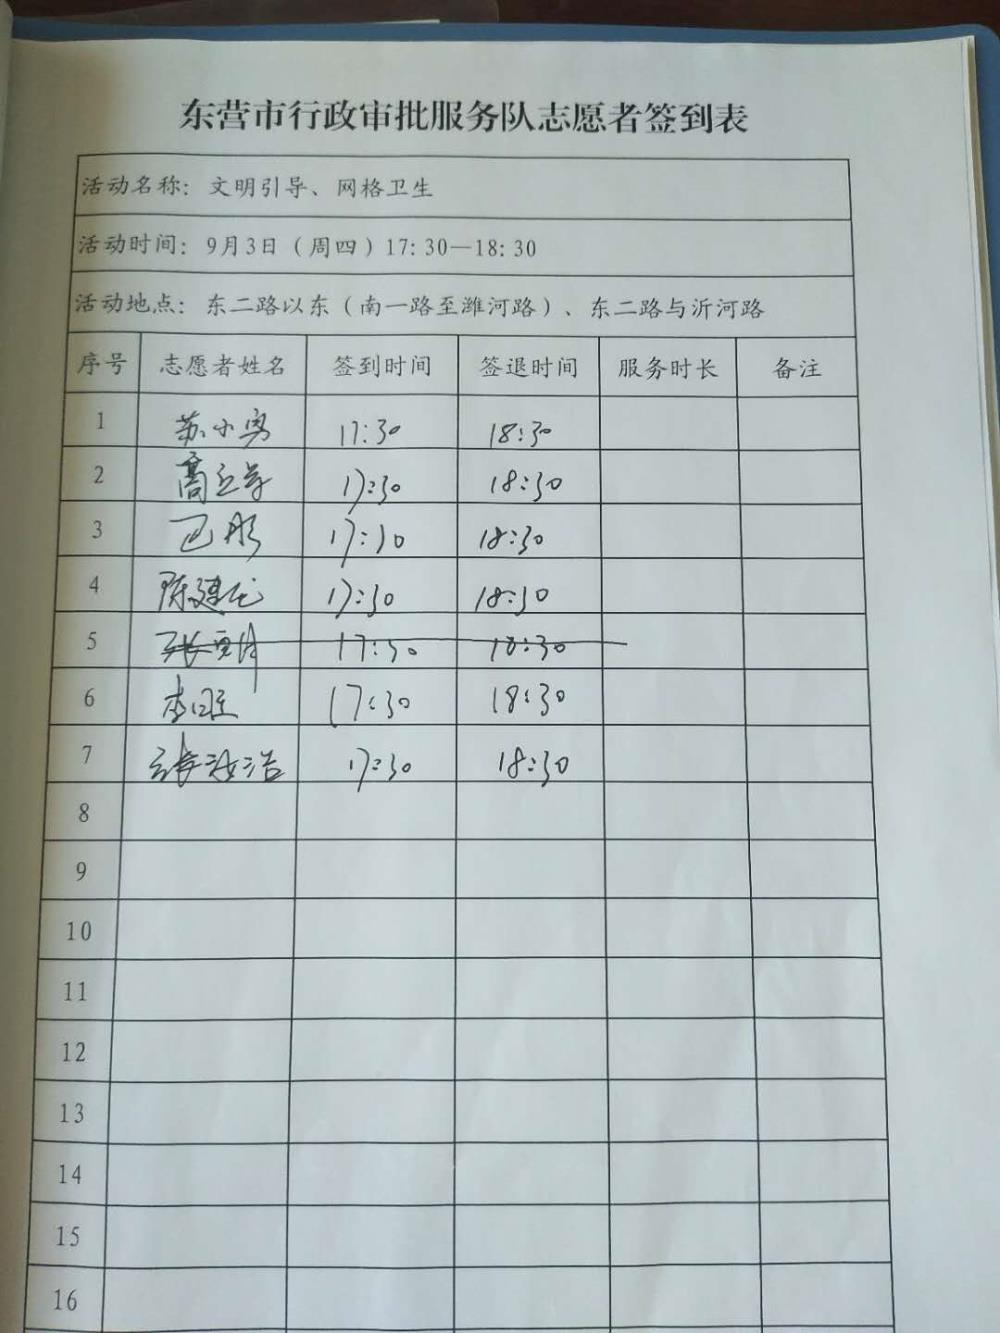 东营市行政审批服务队志愿者签到表
活动名称：文明引导、网格卫生
活动时间：9月3日（周四）17:30—18:30
活动地点：东二路以东（南一路至潍河路）、东二路与沂河路
序号 志愿者姓名 签到时间 签退时间 服务时长 备注
1 苏小勇 17:30 18:30
2 17:30 18:30
3 巴彤 17:30 18:30
4 陈建龙 17:30 18:30
5 17:30 18:30
6 17:30 18:30
7 17:30 18:30
8
9
10
11
12
13
14
15
16